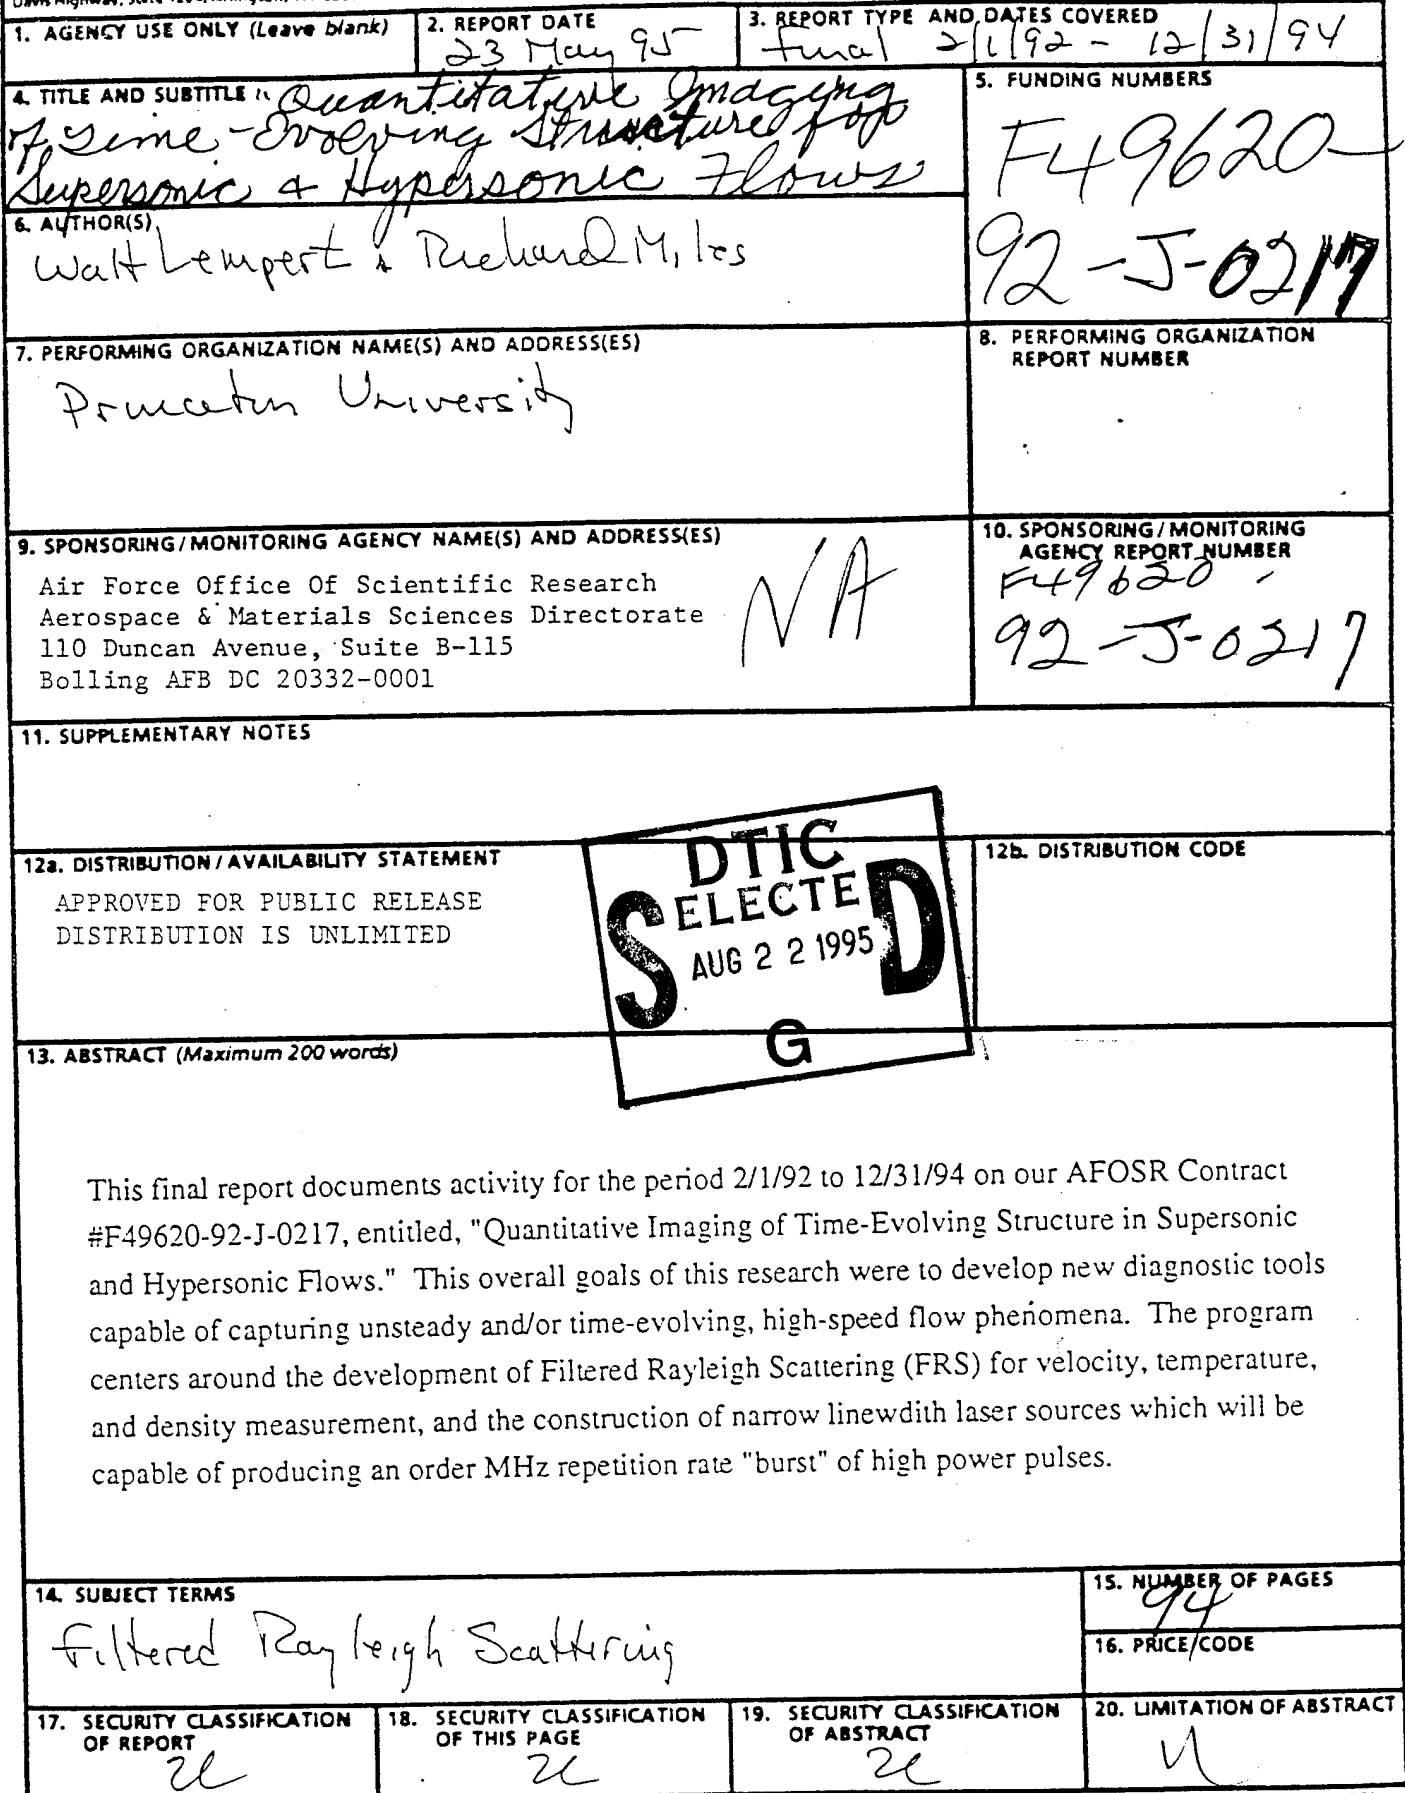 1. AGENCY USE ONLY (Leave blank)
2. REPORT DATE
23 May 95
3. REPORT TYPE AND DATES COVERED
final 2/1/92 - 12/31/94
4. TITLE AND SUBTITLE "Quantitative Imaging
of Time-Evolving Structure for
Supersonic & Hypersonic Flows
5. FUNDING NUMBERS
F49620-
92-J-0217
6. AUTHOR(S)
Walt Lempert & Richard Miles
7. PERFORMING ORGANIZATION NAME(S) AND ADDRESS(ES)
Princeton University
8. PERFORMING ORGANIZATION
REPORT NUMBER
9. SPONSORING/MONITORING AGENCY NAME(S) AND ADDRESS(ES)
Air Force Office Of Scientific Research
Aerospace & Materials Sciences Directorate
110 Duncan Avenue, Suite B-115
Bolling AFB DC 20332-0001
NA
10. SPONSORING/MONITORING
AGENCY REPORT NUMBER
F49620-
92-J-0217
11. SUPPLEMENTARY NOTES
12a. DISTRIBUTION/AVAILABILITY STATEMENT
APPROVED FOR PUBLIC RELEASE
DISTRIBUTION IS UNLIMITED
DTIC
SELECTED
AUG 22 1995
G
12b. DISTRIBUTION CODE
13. ABSTRACT (Maximum 200 words)
This final report documents activity for the period 2/1/92 to 12/31/94 on our AFOSR Contract
#F49620-92-J-0217, entitled, "Quantitative Imaging of Time-Evolving Structure in Supersonic
and Hypersonic Flows." This overall goals of this research were to develop new diagnostic tools
capable of capturing unsteady and/or time-evolving, high-speed flow phenomena. The program
centers around the development of Filtered Rayleigh Scattering (FRS) for velocity, temperature,
and density measurement, and the construction of narrow linewdith laser sources which will be
capable of producing an order MHz repetition rate "burst" of high power pulses.
14. SUBJECT TERMS
Filtered Rayleigh Scattering
15. NUMBER OF PAGES
94
16. PRICE CODE
17. SECURITY CLASSIFICATION
OF REPORT
U
18. SECURITY CLASSIFICATION
OF THIS PAGE
U
19. SECURITY CLASSIFICATION
OF ABSTRACT
U
20. LIMITATION OF ABSTRACT
U